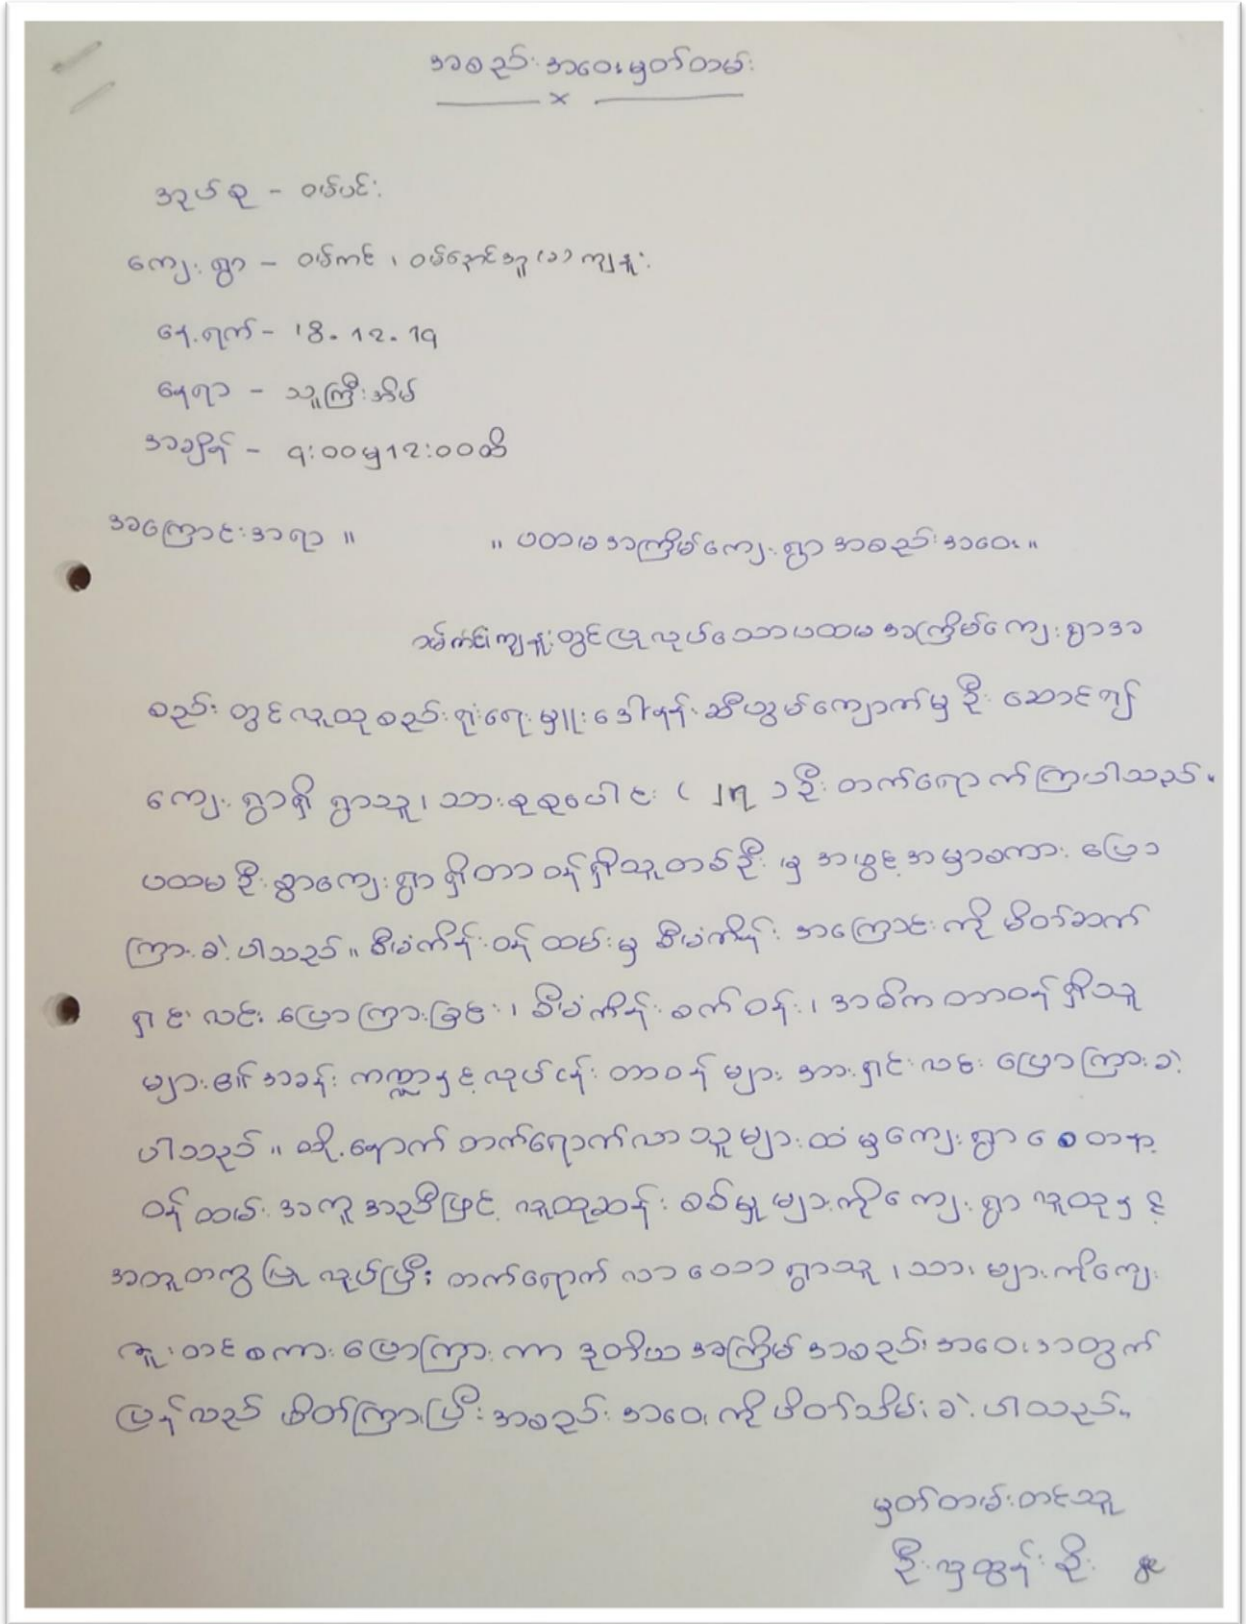 အစည်းအဝေးမှတ်တမ်း
အုပ်စု - ဝမ်ပင်း
ကျေးရွာ - ဝမ်ကင် ၊ ဝမ်နောင်အူ (ခ) ကျနူး
နေ့ရက် - 18.12.19
နေရာ - သူကြီးအိမ်
အချိန် - ၎:၀၀မှ 12:၀၀ထိ
အကြောင်းအရာ ။ ။ ပထမအကြိမ်ကျေးရွာအစည်းအဝေး ။
ဝမ်ကင်၊ ကျနူးတွင်ပြုလုပ်သောပထမအကြိမ်ကျေးရွာအ
စည်းတွင်လူထုစည်းရုံးရေးမှူးဒေါ်နန်းဆီဟွမ်ကျောက်မှဦးဆောင်၍
ကျေးရွာရှိရွာသူ၊ သားစုစုပေါင်း ( ၂၅ ) ဦး တက်ရောက်ကြပါသည်။
ပထမဦးစွာကျေးရွာရှိတာဝန်ရှိသူတစ်ဦးမှ အဖွင့်အမှာစကား ပြော
ကြားခဲ့ပါသည်။ စီမံကိန်းဝန်ထမ်းမှ စီမံကိန်း အကြောင်းကို မိတ်ဆက်
ရှင်းလင်း ပြောကြားခြင်း၊ စီမံကိန်း စက်ဝန်း၊ အဓိကတာဝန်ရှိသူ
များ၏အခန်းကဏ္ဍနှင့်လုပ်ငန်းတာဝန်များအားရှင်းလင်း ပြောကြားခဲ့
ပါသည်။ ထို့နောက် တက်ရောက်လာသူများထံမှကျေးရွာစေတနာ့
ဝန်ထမ်းအကူအညီဖြင့် လူထုဆန်းစစ်မှုများကိုကျေးရွာလူထုနှင့်
အတူတကွပြုလုပ်ပြီး တက်ရောက်လာသောရွာသူ၊သားများကိုကျေး
ဇူးတင်စကားပြောကြားကာ ဒုတိယအကြိမ်အစည်းအဝေးအတွက်
ပြန်လည် ဖိတ်ကြားပြီး အစည်းအဝေးကိုပိတ်သိမ်းခဲ့ပါသည်။
မှတ်တမ်းတင်သူ
ဦးလှထွန်းဦး